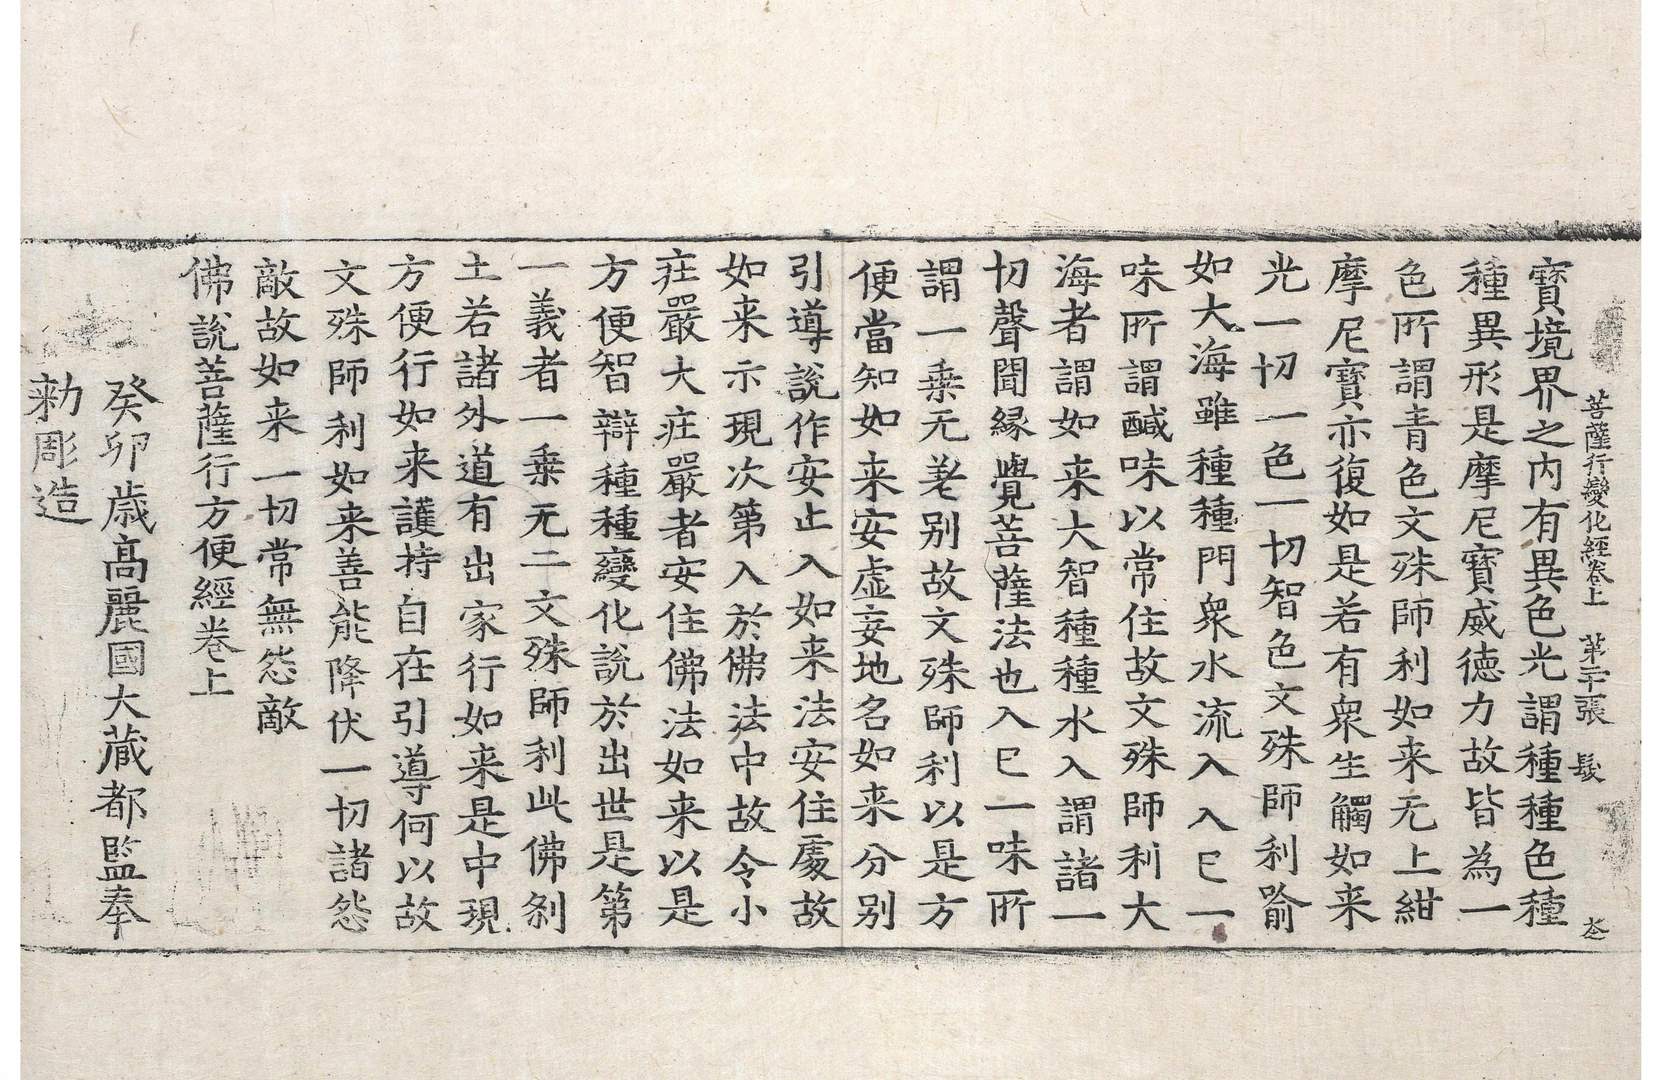 菩薩行變化經卷上 第二十張 髮
寶境界之內有異色光謂種種色種
種異形是摩尼寶威德力故皆為一
色所謂青色文殊師利如来无上紺
摩尼寶亦復如是若有衆生觸如来
光一切一色一切智色文殊師利喻
如大海雖種種門衆水流入入已一
味所謂醎味以常住故文殊師利大
海者謂如来大智種種水入謂諸一
切聲聞緣覺菩薩法也入已一味所
謂一乗无差别故文殊師利以是方
便當知如来安虛妄地名如来分别
引導說作安止入如来法安住處故
如来示現次第入於佛法中故令小
莊嚴大莊嚴者安住佛法如来以是
方便智辯種種變化說於出世是第
一義者一乗无二文殊師利此佛刹
土若諸外道有出家行如来是中現
方便行如来護持自在引導何以故
文殊師利如来善能降伏一切諸怨
敵故如来一切常無怨敵
佛說菩薩行方便經卷上
癸卯歳高麗國大蔵都監奉
勑彫造